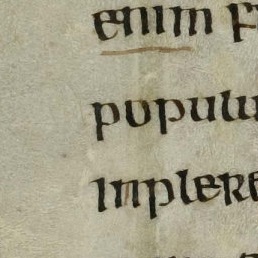 enim
populu
inplere